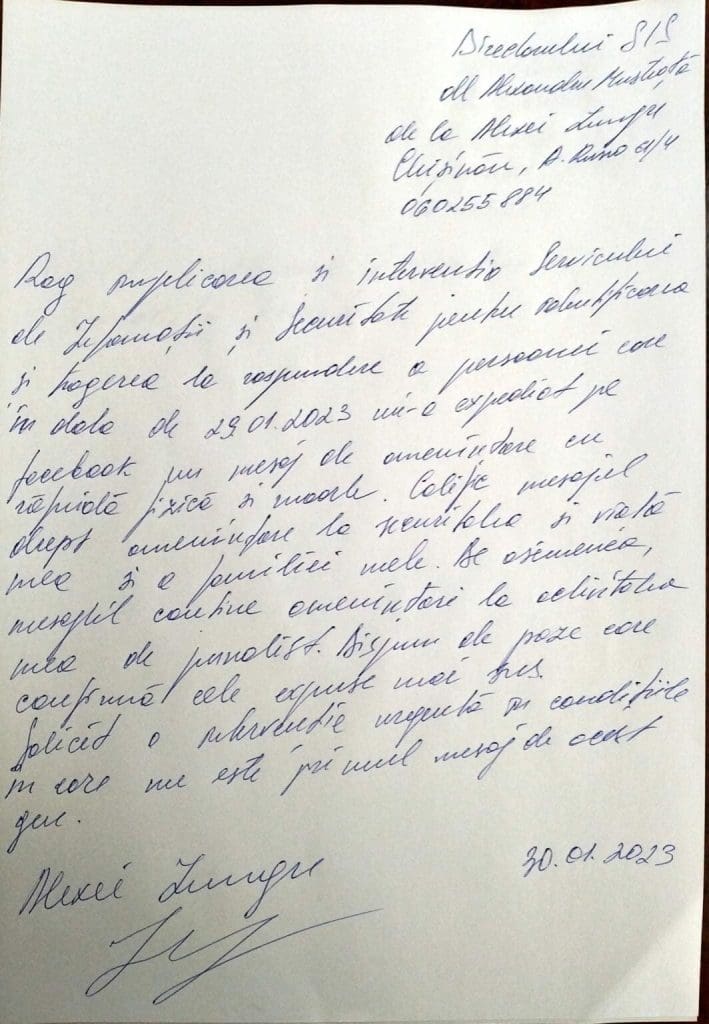 Directorului SIS
dll Alexandru Mustiață
de la Alexei Lungu
Chișinău, A. Russo
060255884
Rog implicarea și intervenția Serviciului
de Informații și Securitate pentru identificarea
și tragerea la raspundere a persoanei care
în data de 29.01.2023 mi-a expediat pe
facebook un mesaj de amenințare cu
fizică și moarte. Calific mesajul
drept amenințare la securitatea și viață
mea și a familiei mele. De asemenea,
mesajul contine amenințări la activitatea
mea de jurnalist. Dispun de poze care
confirmă cele expuse mai sus.
Solicit o intervenție urgentă în condițiile
în care nu este primul mesaj de acest
gen.
Alexei Lungu
30.01.2023